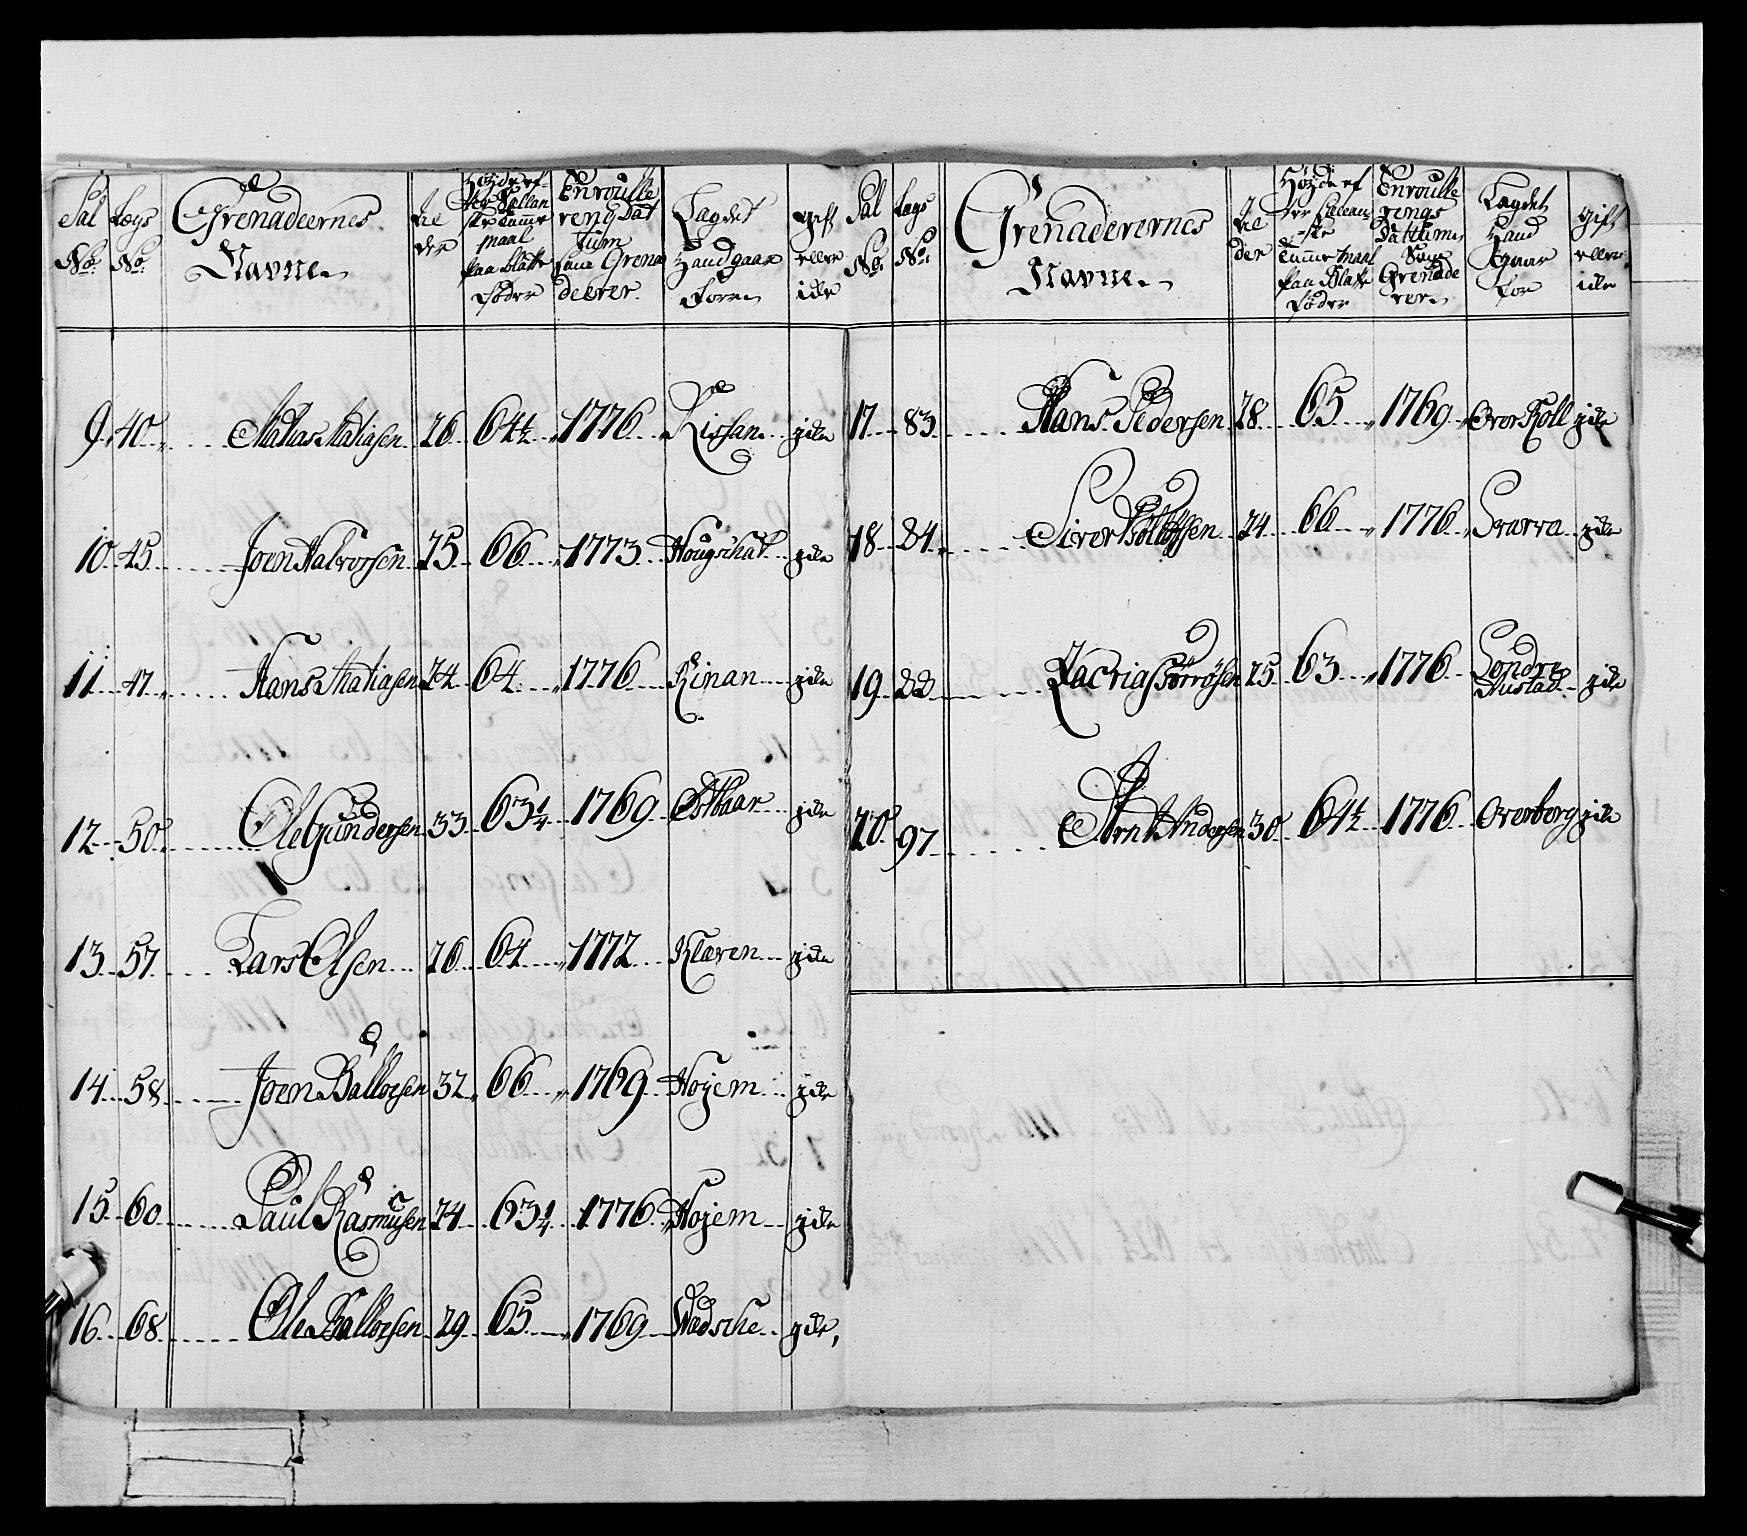 Sal No. Lægs No. Grenadeernes Navne Al der Høyde ef ter Sællan ske tumme maal paa blotte føder Enroulle reng Dat tum som Grena deerer. Lægdet Hand gaar foren gift eller icke
9. 40. Matias Matiasen 26 64½ 1776 Rissan gift
10. 45 Joen Halvorsen 25. 66 1773 Hougshat gift
11. 47 Hans Matiasen 24 64 1776 Rinan gift
12. 50. Ole Gundersen 33 63¼ 1769 Østbaar gift
13. 57 Lars Olsen 26 64 1772 Klæren gift
14. 58. Joen Ballvesen 32 66 1769 Hoyem gift
15. 60 Paul Rasmusen 24 63¼ 1776 Hojem gift
16. 68. Ole Ballvesen 29 65 1769 Wædsche gift
Sal No. Lægs No. Grenaderernes Navne Al der Høyde ef ter ske tumme maal paa Blotte føder Enroulle rengs Dattum Som Grenade rer Lægdet Hand gaar for gift eller icke
17. 83. Hans Pedersen 28. 65 1769 Over Koll gift
18. 84. Siver 24 66 1776 Svarva gift
19. 88 Zacrias 25. 63 1776 Søndre Mustad gift
20. 97. Arnt Andersen 30. 64½ 1776 Overberg gift